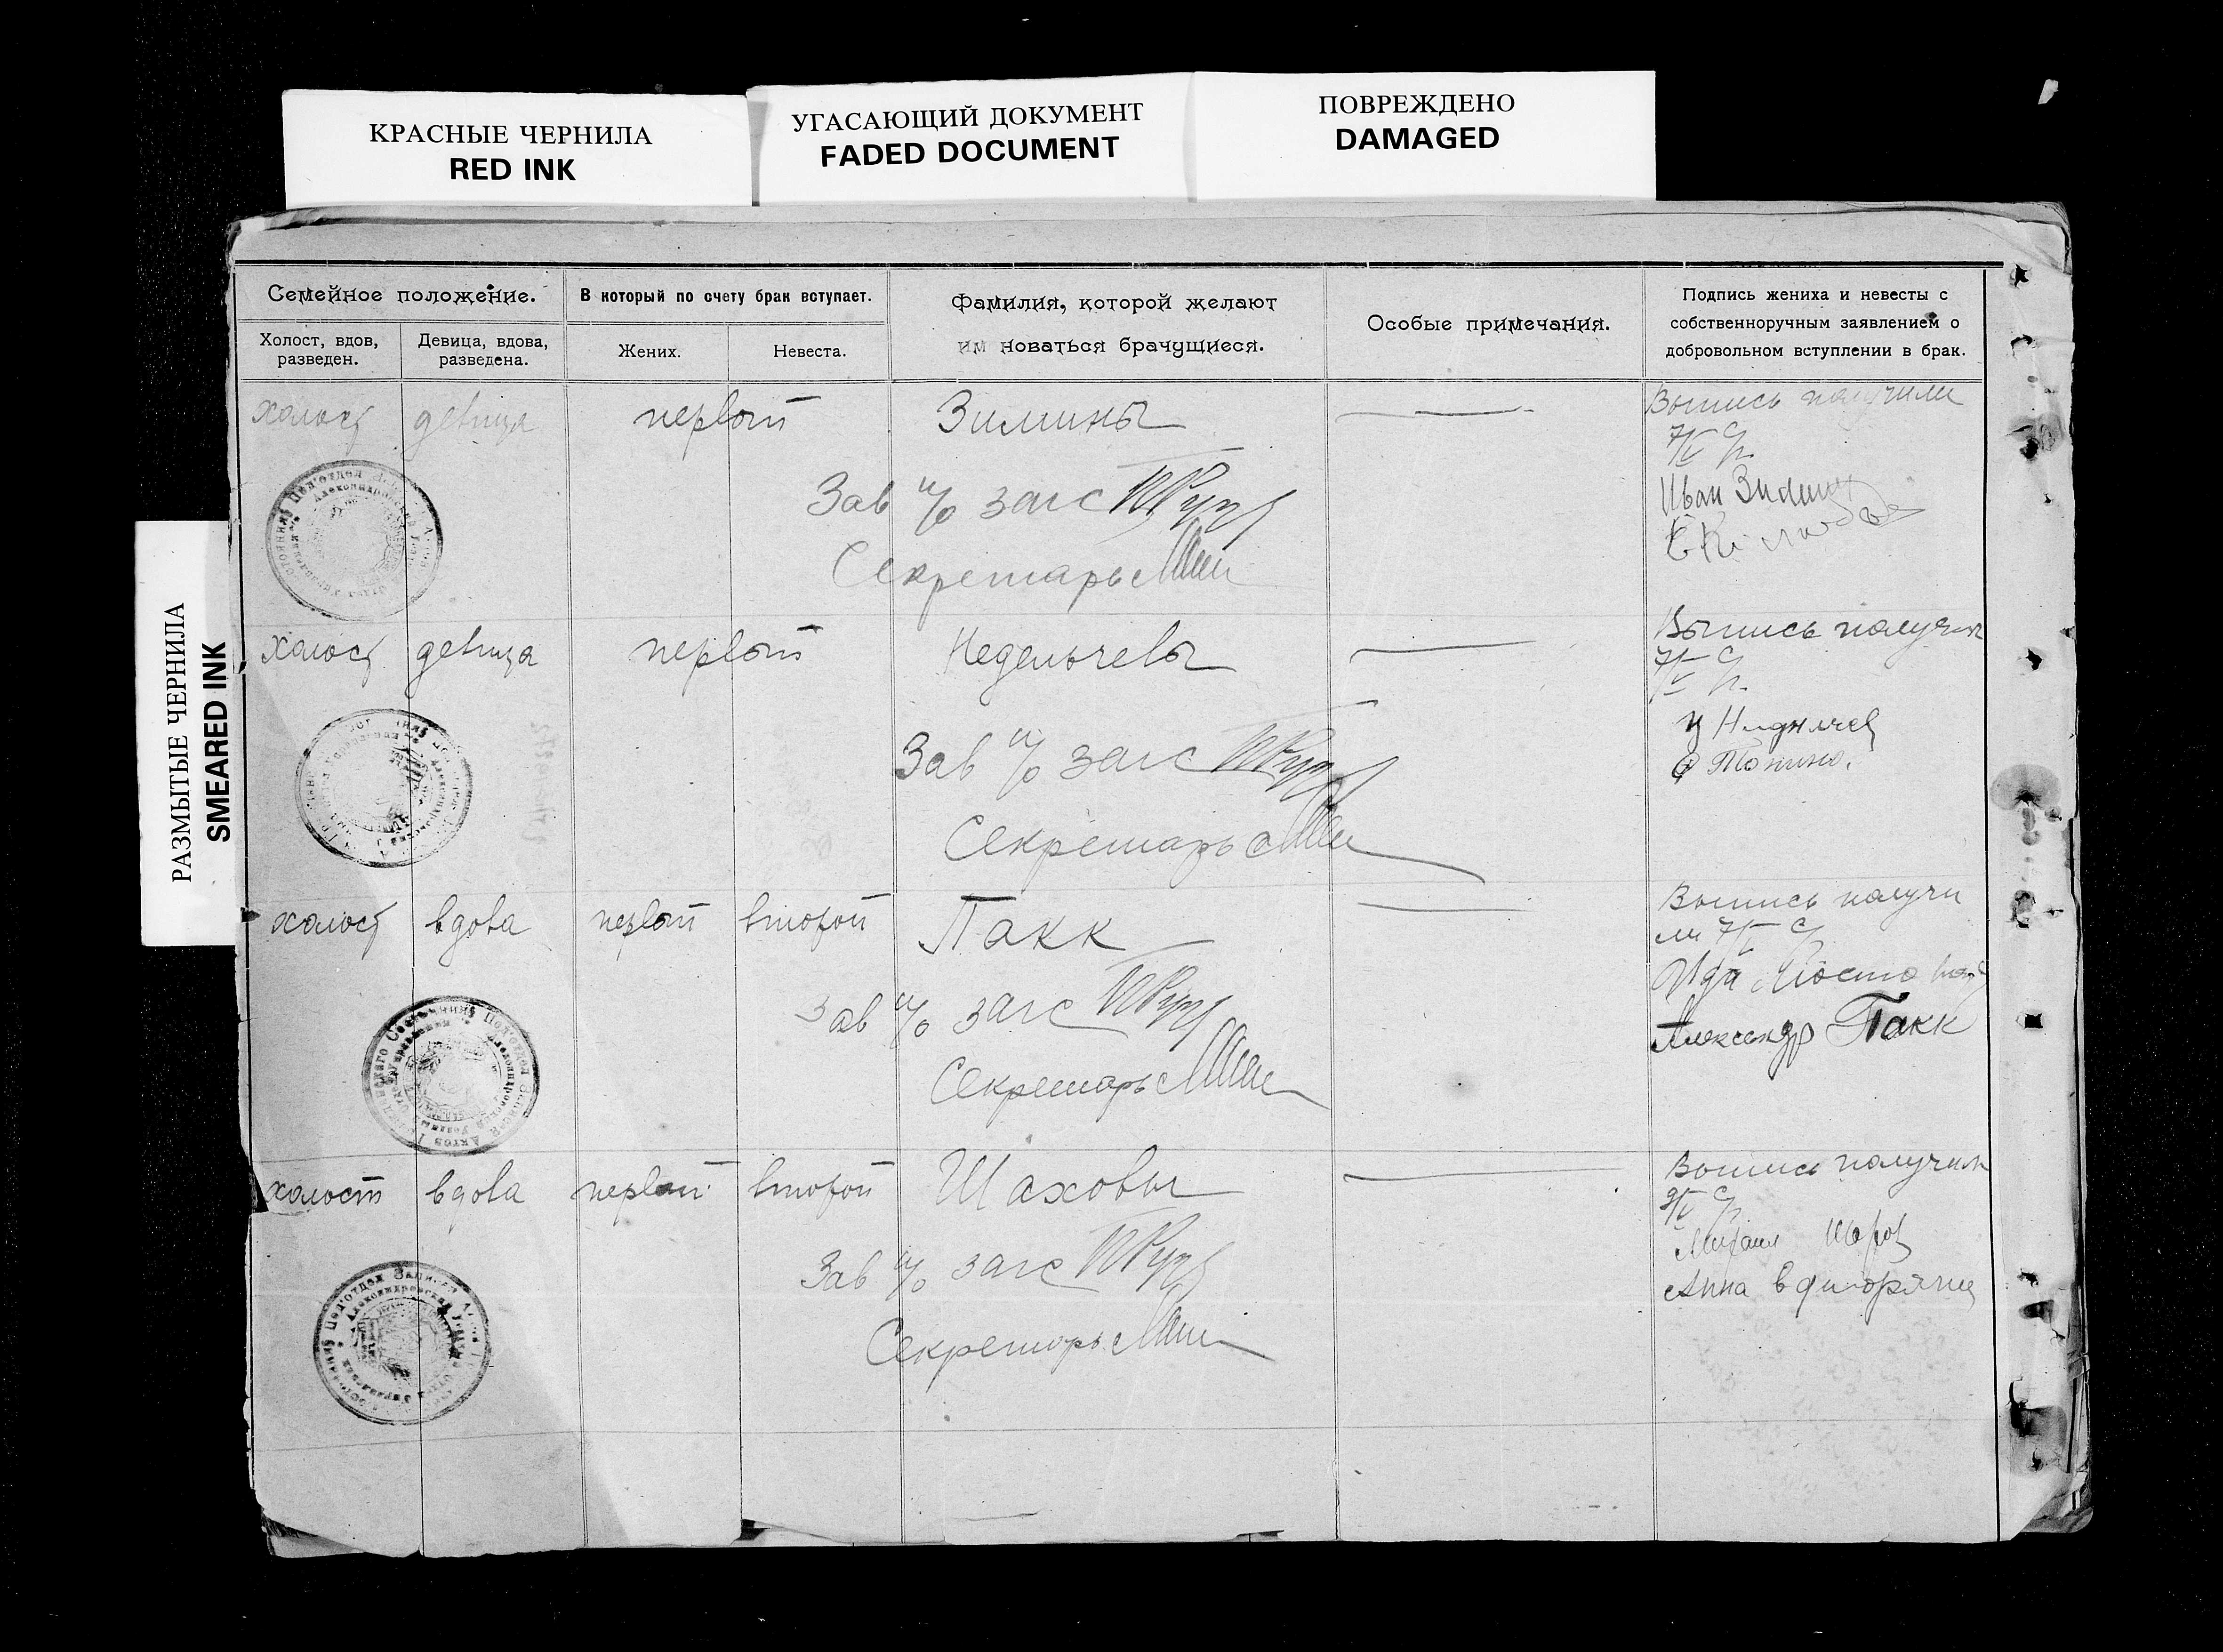 КРАСНЫЕ ЧЕРНИЛА
RED INK
УГАСАЮЩИЙ ДОКУМЕНТ
FADED DOCUMENT
ПОВРЕЖДЕНО
DAMAGED
РАЗМЫТЫЕ ЧЕРНИЛА
SMEARED INK
Семейное положение.
Холост, вдов,
разведен.
Девица, вдова,
разведена.
В который по счету брак вступает.
Жених.
Невеста.
Фамилия, которой желают
им новаться брачущиеся.
Особые примечания.
Подпись жениха и невесты с
собственноручным заявлением о
добровольном вступлении в брак.
холост девица первый Зимины
Выпись получили
7/V
Иван Зимин
Зав п/о загс
Секретарь
холост девица первый Недельчевы
Выпись получили
7/V
Зав п/о загс
Секретарь
холост вдова первый второй Пакк
Выпись получи
ли 7/V
Александр Пакк
Зав п/о загс
Секретарь
холост вдова первый второй Шаховы
Выпись получили
9/V
Михаил Шахов
Анна
Зав п/о загс
Секретарь